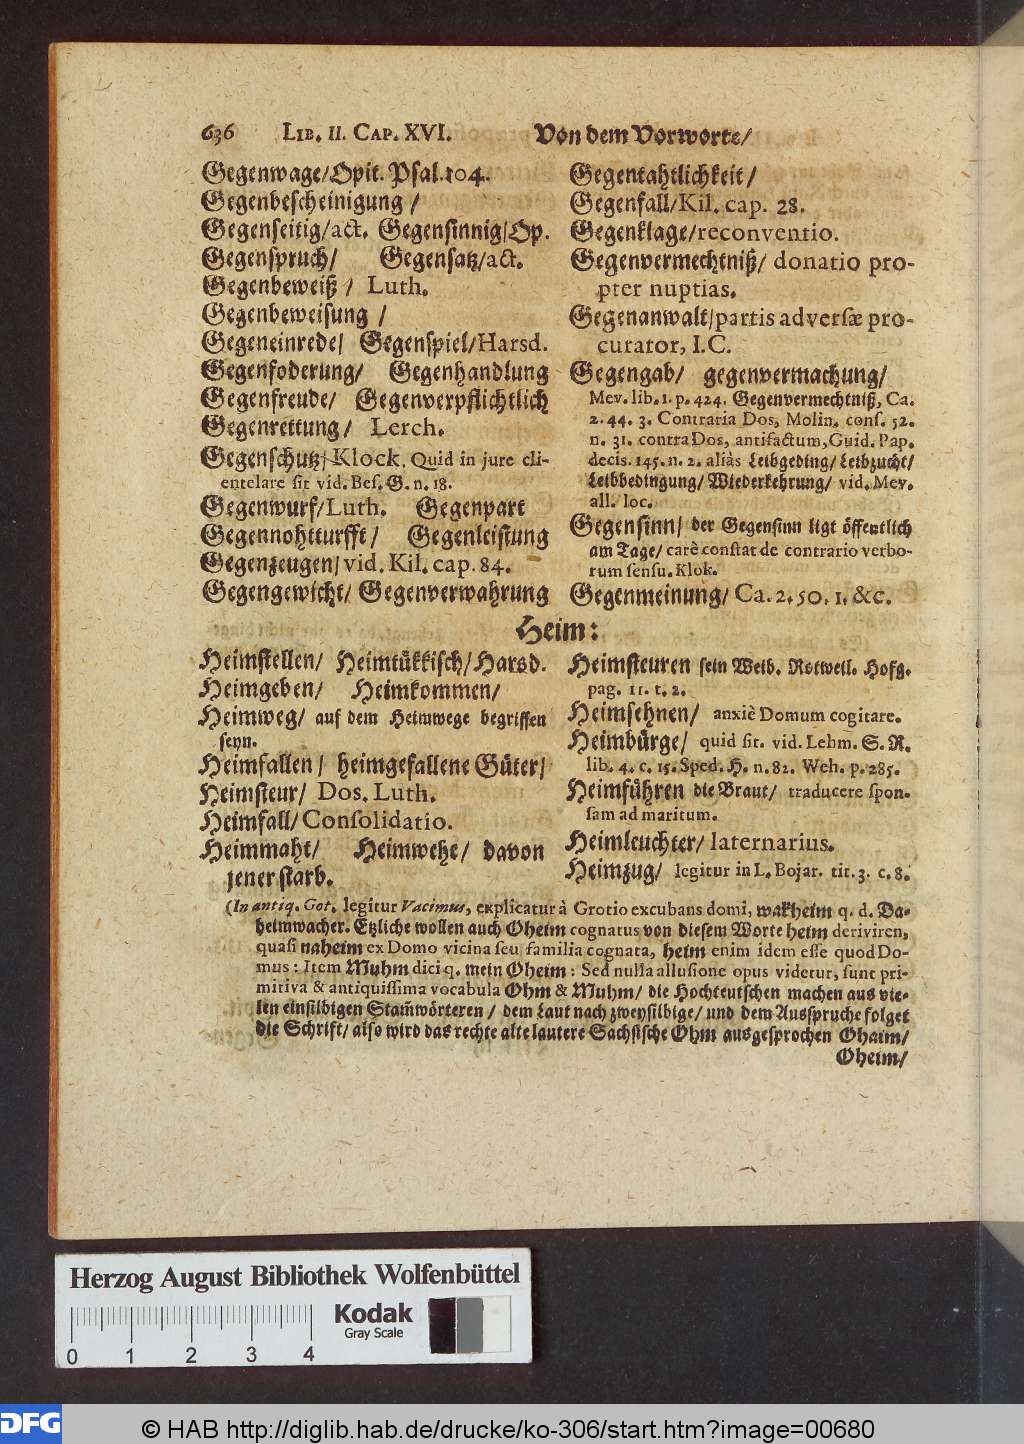 636 LIB. II. CAP. XVI. Von dem Vorworte/
Gegenwage/Opit. Psal. 104.
Gegenbescheinigung /
Gegenseitig/act. Gegensinnig/Op.
Gegenspruch/ Gegensatz/act.
Gegenbeweiß / Luth.
Gegenbeweisung /
Gegeneinrede/ Gegenspiel/Harsd.
Gegenfoderung/ Gegenhandlung
Gegenfreude/ Gegenverpflichtlich
Gegenrettung/ Lerch.
Gegenschutz/Klock. Quid in jure cli-
entelare sit vid. Bes. G. n. 18.
Gegenwurf/Luth. Gegenpart
Gegennohtturfft/ Gegenleistung
Gegenzeugen/vid. Kil. cap. 84.
Gegengewicht/ Gegenverwahrung
Gegentahtlichkeit/
Gegenfall/Kil. cap. 28.
Gegenklage/reconventio.
Gegenvermechtniß/ donatio pro-
pter nuptias.
Gegenanwalt/partis adversæ pro-
curator, I.C.
Gegengab/ gegenvermachung/
Mev. lib. 1. p. 424. Gegenvermechtniß, Ca.
2. 44. 3. Contraria Dos, Molin. cons. 52.
n. 31. contra Dos, antifactum, Guid. Pap.
decis. 145. n. 2. aliàs Leibgeding/ Leibzucht/
Leibbedingung/ Wiederkehrung/ vid. Mev.
all. loc.
Gegensinn/ der Gegensinn ligt öffentlich
am Tage/ carè constat de contrario verbo-
rum sensu. Klok.
Gegenmeinung/ Ca. 2. 50. 1. &c.
Heim:
Heimstellen/ Heimtükkisch/Harsd.
Heimgeben/ Heimkommen/
Heimweg/ auf dem Heimwege begriffen
seyn.
Heimfallen/ heimgefallene Güter/
Heimsteur/ Dos. Luth.
Heimfall/Consolidatio.
Heimmaht/ Heimwehe/ davon
jener starb.
Heimsteuren sein Weib. Rotweil. Hofg.
pag. 11. t. 2.
Heimsehnen/ anxiè Domum cogitare.
Heimbürge/ quid sit. vid. Lehm. S. R.
lib. 4. c. 15. Sped. H. n. 82. Weh. p. 285.
Heimführen die Braut/ traducere spon-
sam ad maritum.
Heimleuchter/ laternarius.
Heimzug/ legitur in L. Bojar. tit. 3. c. 8.
(In antiq. Got. legitur Vacimus, explicatur à Grotio excubans domi, wakheim q. d. Da-
heimwacher. Etzliche wollen auch Oheim cognatus von diesem Worte heim deriviren,
quasi naheim ex Domo vicina seu familia cognata, heim enim idem esse quod Do-
mus: Item Muhm dici q. mein Oheim: Sed nulla allusione opus videtur, sunt pri-
mitiva & antiquissima vocabula Ohm & Muhm/ die Hochteutschen machen aus vie-
len einsilbigen Stam̃wörteren / dem Laut nach zweysilbige/ und dem Ausspruche folget
die Schrift/ also wird das rechte alte lautere Sachsische Ohm ausgesprochen Ohaim/
Oheim/
Herzog August Bibliothek Wolfenbüttel
Kodak
Gray Scale
0 1 2 3 4
DFG
© HAB http://diglib.hab.de/drucke/ko-306/start.htm?image=00680